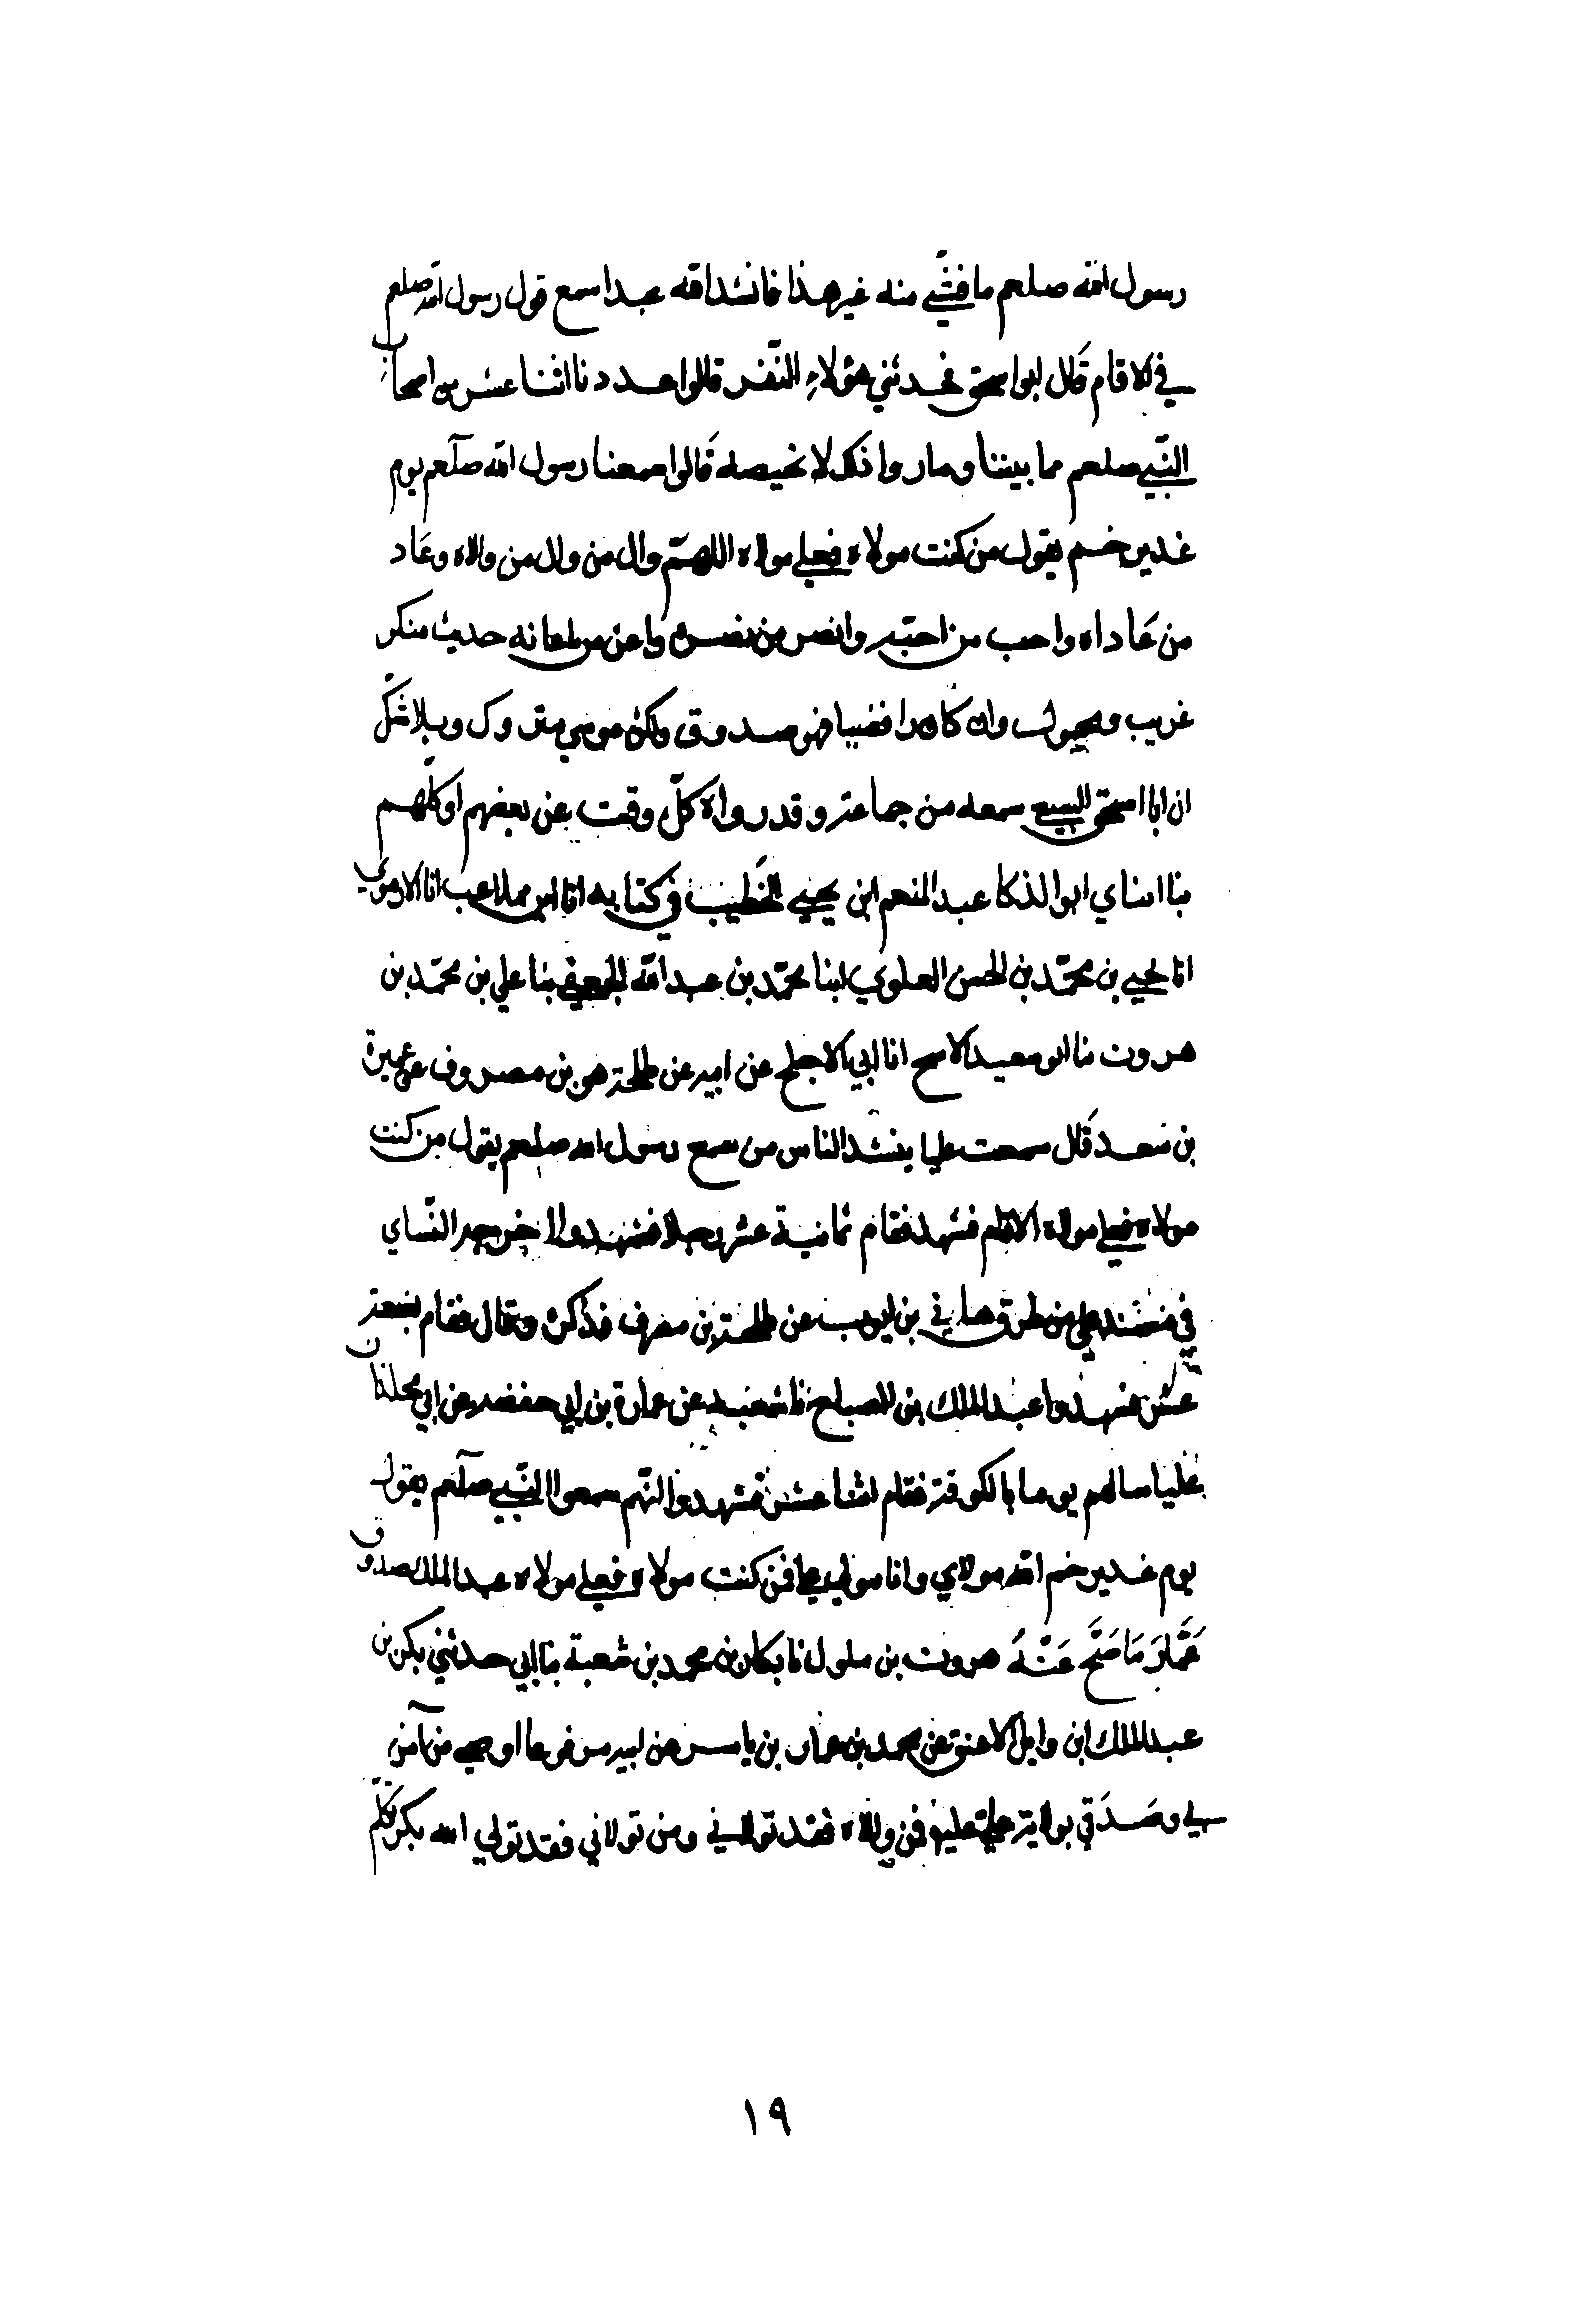 رسول الله صلعم ما فتني منه غير هذا فانشد الله عبدا سمع قول رسول الله صلعم
في الا قام قال ابو اسحق فحدثني هؤلاء النّفر قالوا عددنا اثنا عشر من اصحاب
النّبي صلعم مما بيننا وماروا ذلك لا نحيصه قالوا سمعنا رسول الله صلعم يوم
غدير خم يقول من كنت مولاه فعلي مولاه اللهمّ وال من وال من والاه وعاد
من عاداه واحب من احبّه وانصر من نصره واعن من اعانه حديث منكر
غريب ومجهول وان كان رافضيا فهو صدوق ولكن موسي متروك وبلا شكّ
ان ابا اسحق السبيعي سمعه من جماعة وقد رواه كلّ وقت عن بعضهم او كلّهم
بنا ابو الذكا عبد المنعم ابن يحيي الخطيب في كتابه انا ابن ملاعب انا الارموي
انا يحيي بن محمّد بن الحسن العلوي ابنا محمّد بن عبد الله الجعفي بنا علي بن محمّد بن
هرون نا ابو سعيد الاشج انا ابي الاجلح عن ابيه عن طلحة هو بن مصروف عن عميرة
بن سعد قال سمعت عليا ينشد الناس من سمع رسول الله صلعم يقول من كنت
مولاه فعلي مولاه الا قام فشهد فقام ثمانية عشر رجلا فشهدوا الا خرجه النّساي
في مسند علي من طرق هاني بن ايوب عن طلحة بن مصرف فذكره وقال فقام بضعة
عشر فشهدوا عبد الملك بن الصباح نا شعبة عن عمارة بن ابي حفصه عن ابي مجلز ان
عليا سالهم يوما بالكوفة فقام اثنا عشر فشهدوا انّهم سمعوا النّبي صلعم يقول
يوم غدير خم الله مولاي وانا مولي علي فمن كنت مولاه فعلي مولاه عبد الملك صدوق
عَمّار مَا صَحَّ عَنْهُ هرون بن سلول نا بكار بن محمد بن شعبة نا ابي حدثني بكر بن
عبد الملك ابن وايل الاعنق عن محمد بن عمار بن ياسر عن ابيه مرفوعا اوصي من آمن
بي وصَدقي بولاية علي عليه فمن والاه فقد تولاني ومن تولاني فقد تولي الله بكر تكلّم
١٩